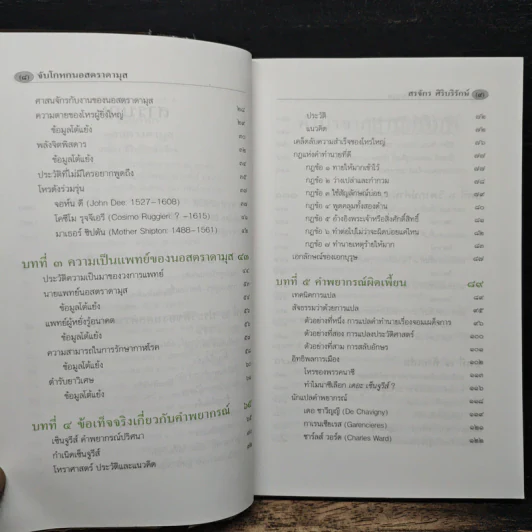 (๘) จับโกหกนอสตราดามุส
ศาสนจักรกับงานของนอสตราดามุส ๒๘
ความตายของโหรผู้ยิ่งใหญ่
ข้อมูลโต้แย้ง
พลังจิตพิสดาร
ข้อมูลโต้แย้ง
ประวัติที่ไม่มีใครอยากพูดถึง
โหรดังร่วมรุ่น
จอห์น ดี (John Dee: 1527-1608)
โคซิโม รุจจิเอรี (Cosimo Ruggieri: ? -1615)
มาเธอร์ ชิปตัน (Mother Shipton: 1488-1561)
บทที่ ๓ ความเป็นแพทย์ของนอสตราดามุส ๔๓
ประวัติความเป็นมาของวงการแพทย์
นายแพทย์นอสตราดามุส
ข้อมูลโต้แย้ง
แพทย์ผู้หยั่งรู้อนาคต
ข้อมูลโต้แย้ง
ความสามารถในการรักษากาฬโรค
ข้อมูลโต้แย้ง
ตำรับยาวิเศษ
ข้อมูลโต้แย้ง
บทที่ ๔ ข้อเท็จจริงเกี่ยวกับคำพยากรณ์ ๖๕
เซ็นจูรีส์ คำพยากรณ์ปริศนา
กำเนิดเซ็นจูรีส์
โหราศาสตร์ ประวัติและแนวคิด
สรจักร ศิริบริรักษ์ (๙)
ประวัติ
แนวคิด
เคล็ดลับความสำเร็จของโหรใหญ่
กฎแห่งคำทำนายที่ดี
กฎข้อ ๑ ทายให้มากเข้าไว้
กฎข้อ ๒ ว่างเปล่าและกำกวม
กฎข้อ ๓ ใช้สัญลักษณ์บ่อย ๆ
กฎข้อ ๔ พูดคลุมทั้งสองด้าน
กฎข้อ ๕ อ้างอิงพระเจ้าหรือสิ่งศักดิ์สิทธิ์
กฎข้อ ๖ ทำต่อไปไม่ว่าจะผิดบ่อยแค่ไหน
กฎข้อ ๗ ทำนายเหตุร้ายให้มาก
เอกลักษณ์ของเอกบุรุษ
บทที่ ๕ คำพยากรณ์ผิดเพี้ยน ๘๙
เทคนิคการแปล ๘๙
สัจธรรมว่าด้วยการแปล ๙๕
ตัวอย่างที่หนึ่ง การแปลคำทำนายเรื่องจอมเผด็จการ ๙๖
ตัวอย่างที่สอง การแปลงประวัติศาสตร์ ๑๐๐
ตัวอย่างที่สาม การสลับอักษร ๑๐๐
อิทธิพลการเมือง
โหรของพรรคนาซี
ทำไมนาซีเลือก เดอะ เซ็นจูรีส์ ? ๑๑๖
นักแปลคำพยากรณ์ ๑๑๘
เดอ ชาวีญญี (De Chavigny)
กาเรนเซียเรส (Garencieres) ๑๒๑
ชาร์ลส์ วอร์ด (Charles Ward) ๑๒๒